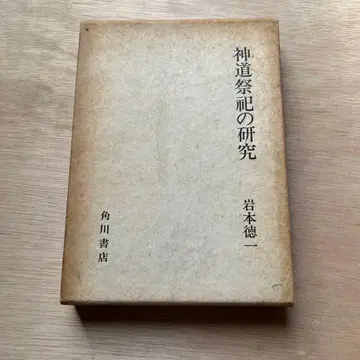 神道祭祀の研究
岩本徳一
角川書店